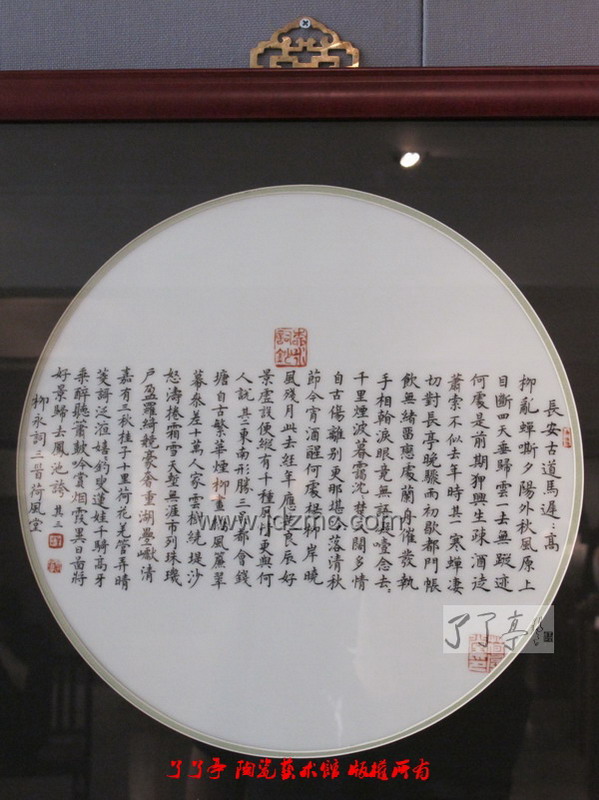 柳永
詞鈔
長安古道馬遲：高
柳亂蟬嘶夕陽外秋風原上
目斷四天垂歸雲一去無蹤迹
何處是前期狎興生疎酒徒
蕭索不似去年時其一寒蟬凄
切對長亭晚驟雨初歇都門帳
飲無緒留戀處蘭舟催發執
手相淚眼竟無語噎念去：
千里煙波暮靄沈：楚天闊多情
自古傷離別更那堪冷落清秋
節今宵酒醒何處楊柳岸曉
風殘月此去經年應是良辰好
景虛設便縱有千種風情更與何
人說其二東南形勝三吳都會錢
塘自古繁華煙柳畫橋風簾翠
幕參差十萬人家雲樹繞堤沙
怒濤捲霜雪天塹無涯市列珠璣
戶盈羅綺競豪奢重湖疊巘清
嘉有三秋桂子十里荷花羌管弄晴
菱謌泛夜嬉釣叟蓮娃千騎高牙
乘醉聽蕭鼓吟賞烟霞異日圖將
好景歸去鳳池誇其三
柳永詞三首荷風堂
www.jdzmc.com
了了亭
了了亭 陶瓷藝术館 版權所有